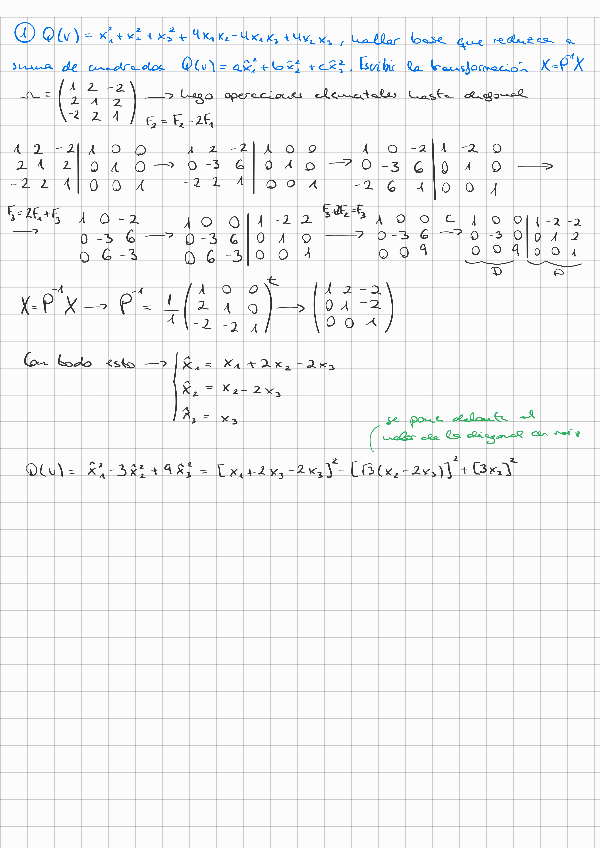 ① Q(v) = x₁² + x₂² + x₃² + 4x₁x₂ - 4x₁x₃ + 4x₂x₃, hallar base que reduzca a
suma de cuadrados Q(v) = ax̂₁² + bx̂₂² + cx̂₃². Escribir la transformación X̂=P⁻¹X
= ( 1 2 -2 / 2 1 2 / -2 2 1 ) → hago operaciones elementales hasta diagonal
F₂ = F₂ - 2F₁
1 2 -2 | 1 0 0 → 1 2 -2 | 1 0 0 → 1 0 -2 | 1 -2 0
2 1 2 | 0 1 0 0 -3 6 | 0 1 0 0 -3 6 | 0 1 0 →
-2 2 1 | 0 0 1 -2 2 1 | 0 0 1 -2 6 1 | 0 0 1
F₃ = 2F₁ + F₃ F₃+2F₂=F₃
→ 1 0 -2 → 1 0 0 | 1 -2 2 → 1 0 0 C → 1 0 0 | 1 -2 -2
0 -3 6 0 -3 6 | 0 1 0 0 -3 6 0 -3 0 | 0 1 2
0 6 -3 0 6 -3 | 0 0 1 0 0 9 0 0 9 | 0 0 1
D P
X̂ = P⁻¹X → P⁻¹ = 1/1 ( 1 0 0 / 2 1 0 / -2 -2 1 )ᵗ → ( 1 2 -2 / 0 1 -2 / 0 0 1 )
Con todo esto → x̂₁ = x₁ + 2x₂ - 2x₃
x̂₂ = x₂ - 2x₃
x̂₃ = x₃
se pone delante el
valor de la diagonal con raíz
Q(v) = x̂₁² - 3x̂₂² + 9x̂₃² = [x₁ + 2x₃ - 2x₃]² - [√3(x₂ - 2x₃)]² + [3x₃]²